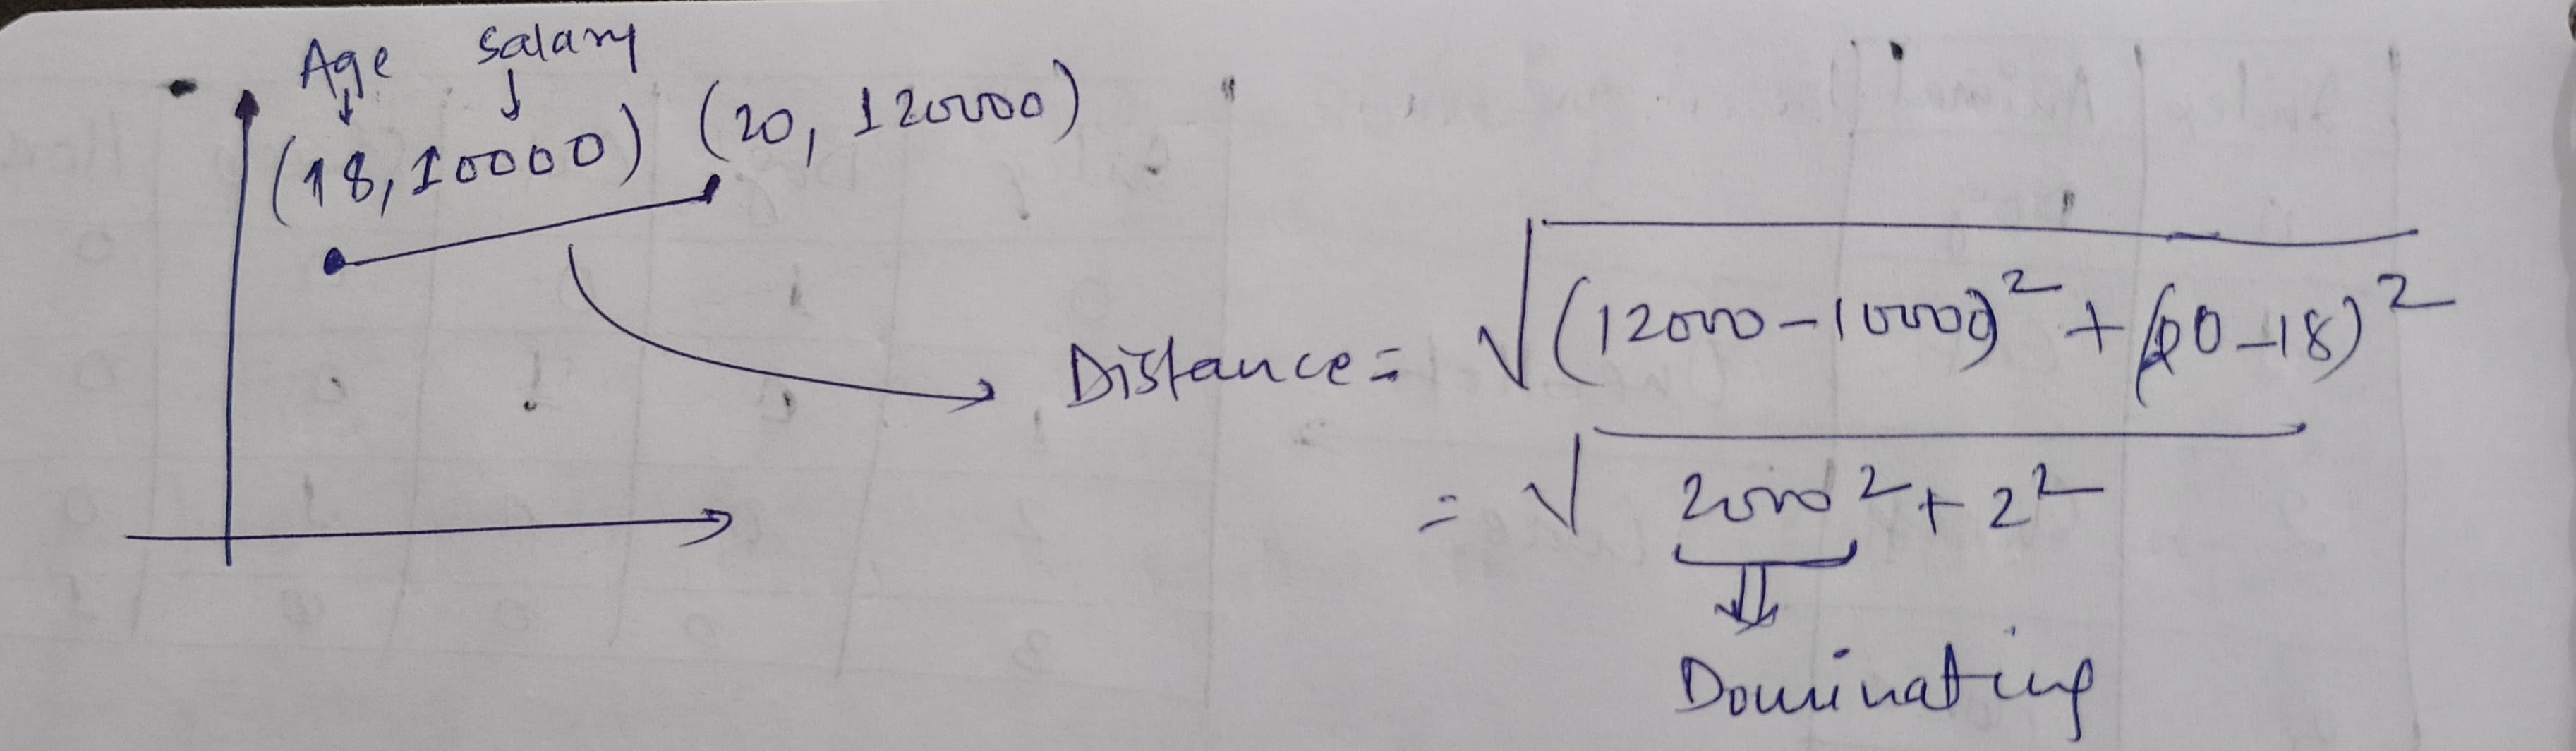 Age Salary
(18, 10000) (20, 120000)
Distance = √(12000-10000)² + (20-18)²
= √2000² + 2²
Dominating